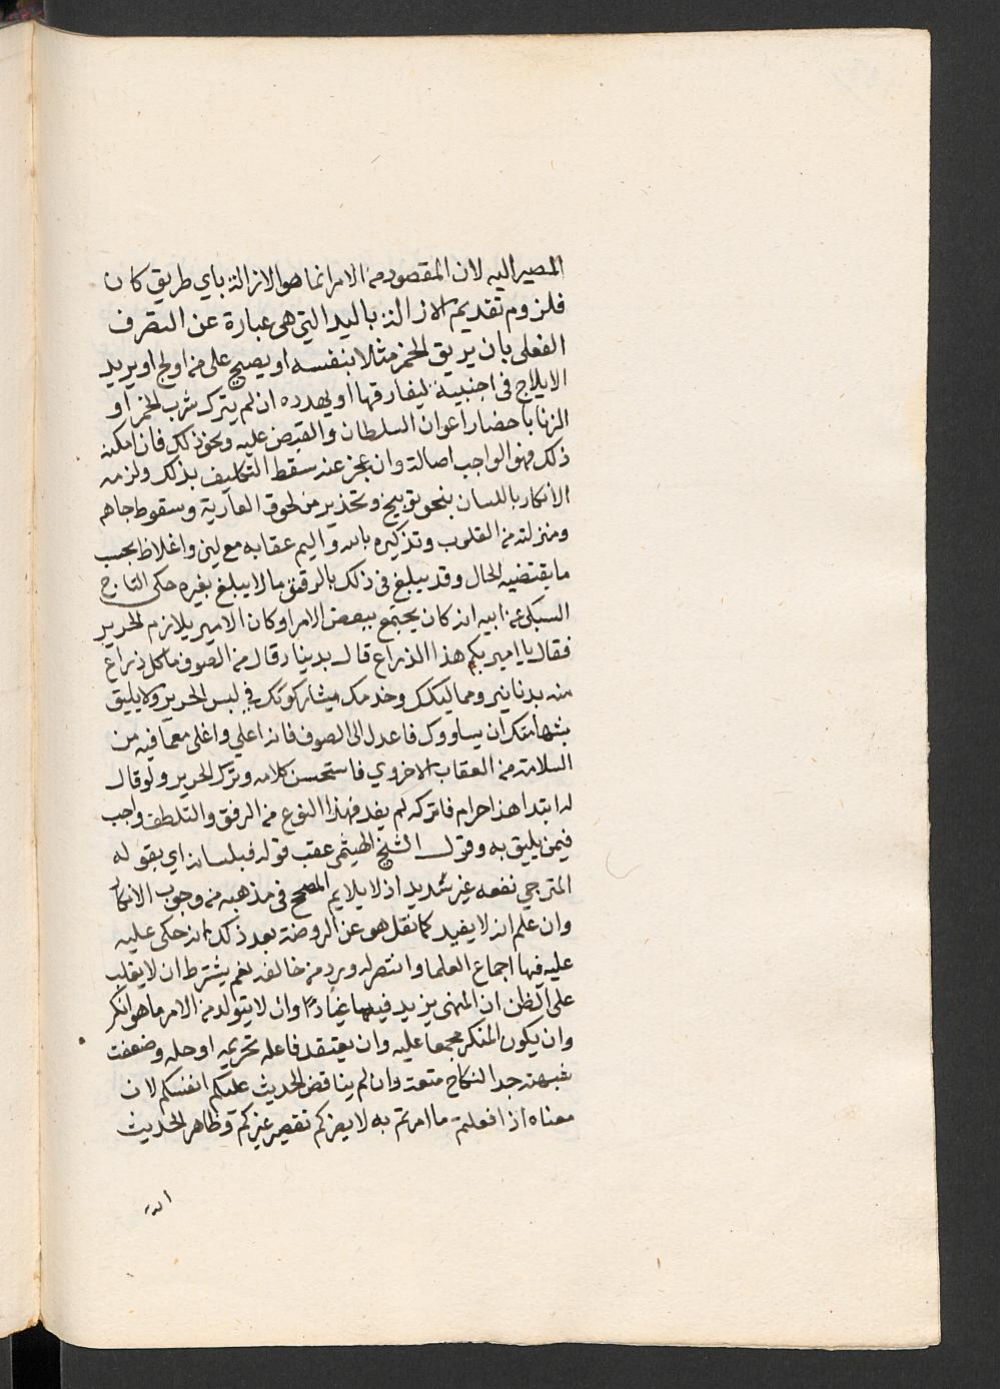 المصير اليه لان المقصود من الامر انما هو الازالة باي طريق كان
فلزوم تقديم الازالة باليد التي هي عبارة عن التصرف
الفعلي بان يريق الخمر مثلا بنفسه او يصيح على من اولج او يريد
الايلاج في اجنبية ليفارقها او يهدده ان لم يترك شرب الخمر او
الزنا باحضار اعوان السلطان والقبض عليه ونحو ذلك فان امكنه
ذلك فهو الواجب اصالة وان عجز عنه سقط التكليف بذلك ولزمه
الانكار باللسان بنحو توبيخ وتحذير من لحوق العار به وسقوط جاهه
ومنزلته من القلوب وتذكيره بالله واليم عقابه مع لين واغلاظ بحسب
ما يقتضيه الحال وقد يبلغ في ذلك بالرفق ما لا يبلغ بغيره حكى التاج
السبكي عن ابيه انه كان يجتمع ببعض الامرا وكان الامير يلازم الحرير
فقال يا امير بكم هذا الذراع قال بدينار قال من الصوف ما كل ذراع
منه بدنانير ومماليكك وخدمك يشاركونك في لبس الحرير ولا يليق
بشهامتك ان يساووك فاعدل الى الصوف فانه اعلي واغلى مع ما فيه من
السلامة من العقاب الاخروي فاستحسن كلامه وترك الحرير ولو قال
له ابتدا هذا حرام فاتركه لم يفد فهذا النوع من الرفق والتلطف واجب
فيمن يليق به وقول الشيخ الهيثمي عقب قوله فبلسانه اي بقوله
المترجي نفعه غير شديد اذ لا يلايم المصحح في مذهبه من وجوب الانكار
وان علم انه لا يفيد كما نقل هو عن الروضة بعد ذلك انه حكى عليه
عليه فيها اجماع العلما وانتصر له ورد من خالفه نعم يشترط ان لا يغلب
على الظن ان المنهي يزيد فيها عنادًا وان لا يتولد من الامر ما هو انكر
وان يكون المنكر مجمعا عليه وان يعتقد فاعله تحريمه او حله وضعفت
شبهته جدا لنكاح متعة وان لم يناقض الحديث عليكم انفسكم لان
معناه اذا فعلتم ما امرتم به لا يضركم تقصير غيركم وظاهر الحديث